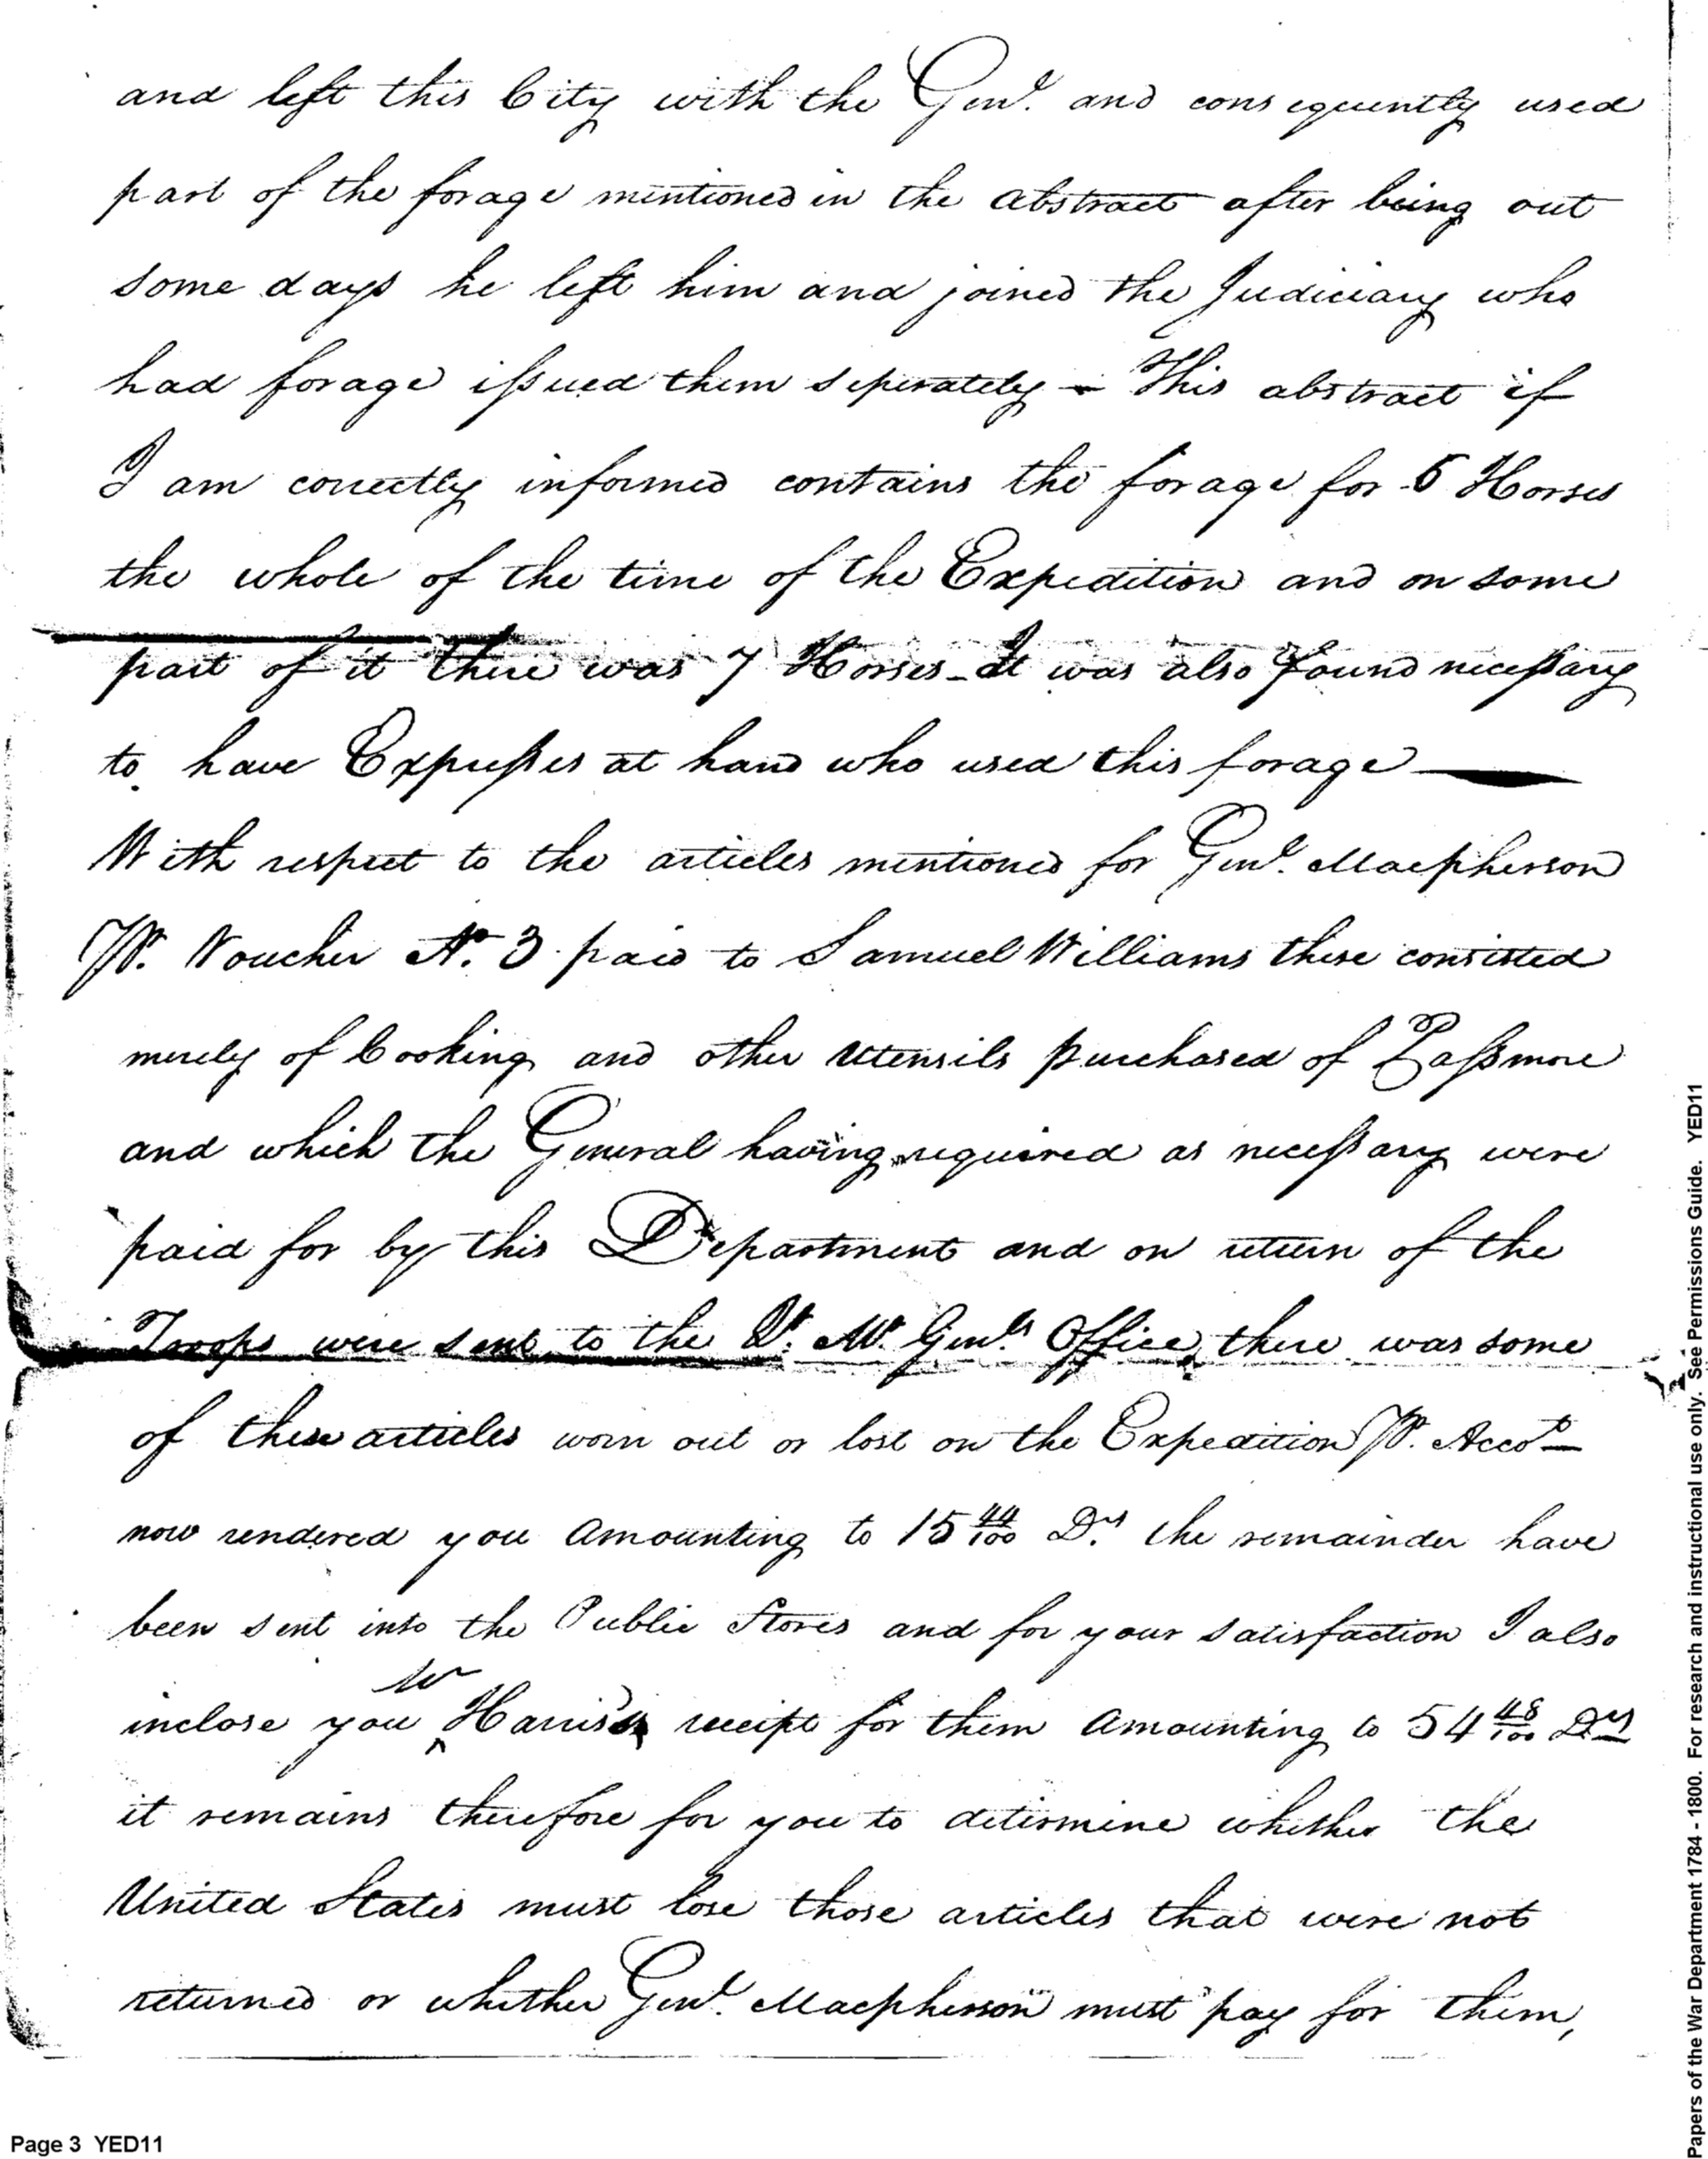 and left this City with the Genl. and consequently used
part of the forage mentioned in the abstract after being out
some days he left him and joined the Judiciary who
had forage issued them seperately – This abstract if
I am correctly informed contains the forage for 5 Horses
the whole of the time of the Expedition and on some
part of it there was 7 Horses – It was also found necessary
to have Expresses at hand who used this forage —
With respect to the articles mentioned for Genl. Macpherson
Pr. Voucher No. 3 paid to Samuel Williams these consisted
merely of Cooking and other utensils purchased of Passmore
and which the General having required as necessary were
paid for by this Department and on return of the
Troops were sent to the Qr. Mr. Genls. Office, there was some
of these articles worn out or lost on the Expedition Pr. Accot
now rendered you amounting to 15 44/100 Drs. the remainder have
been sent into the Public Stores and for your satisfaction I also
inclose you Mr Harris's receipt for them amounting to 54 48/100 Drs
it remains therefore for you to determine whether the
United States must lose those articles that were not
returned or whether Genl. Macpherson must pay for them,
Page 3 YED11
Papers of the War Department 1784 - 1800. For research and instructional use only. See Permissions Guide. YED11